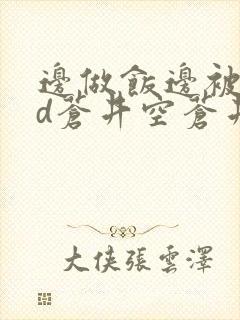 邊做飯邊被
d蒼井空蒼井
大俠張雲澤